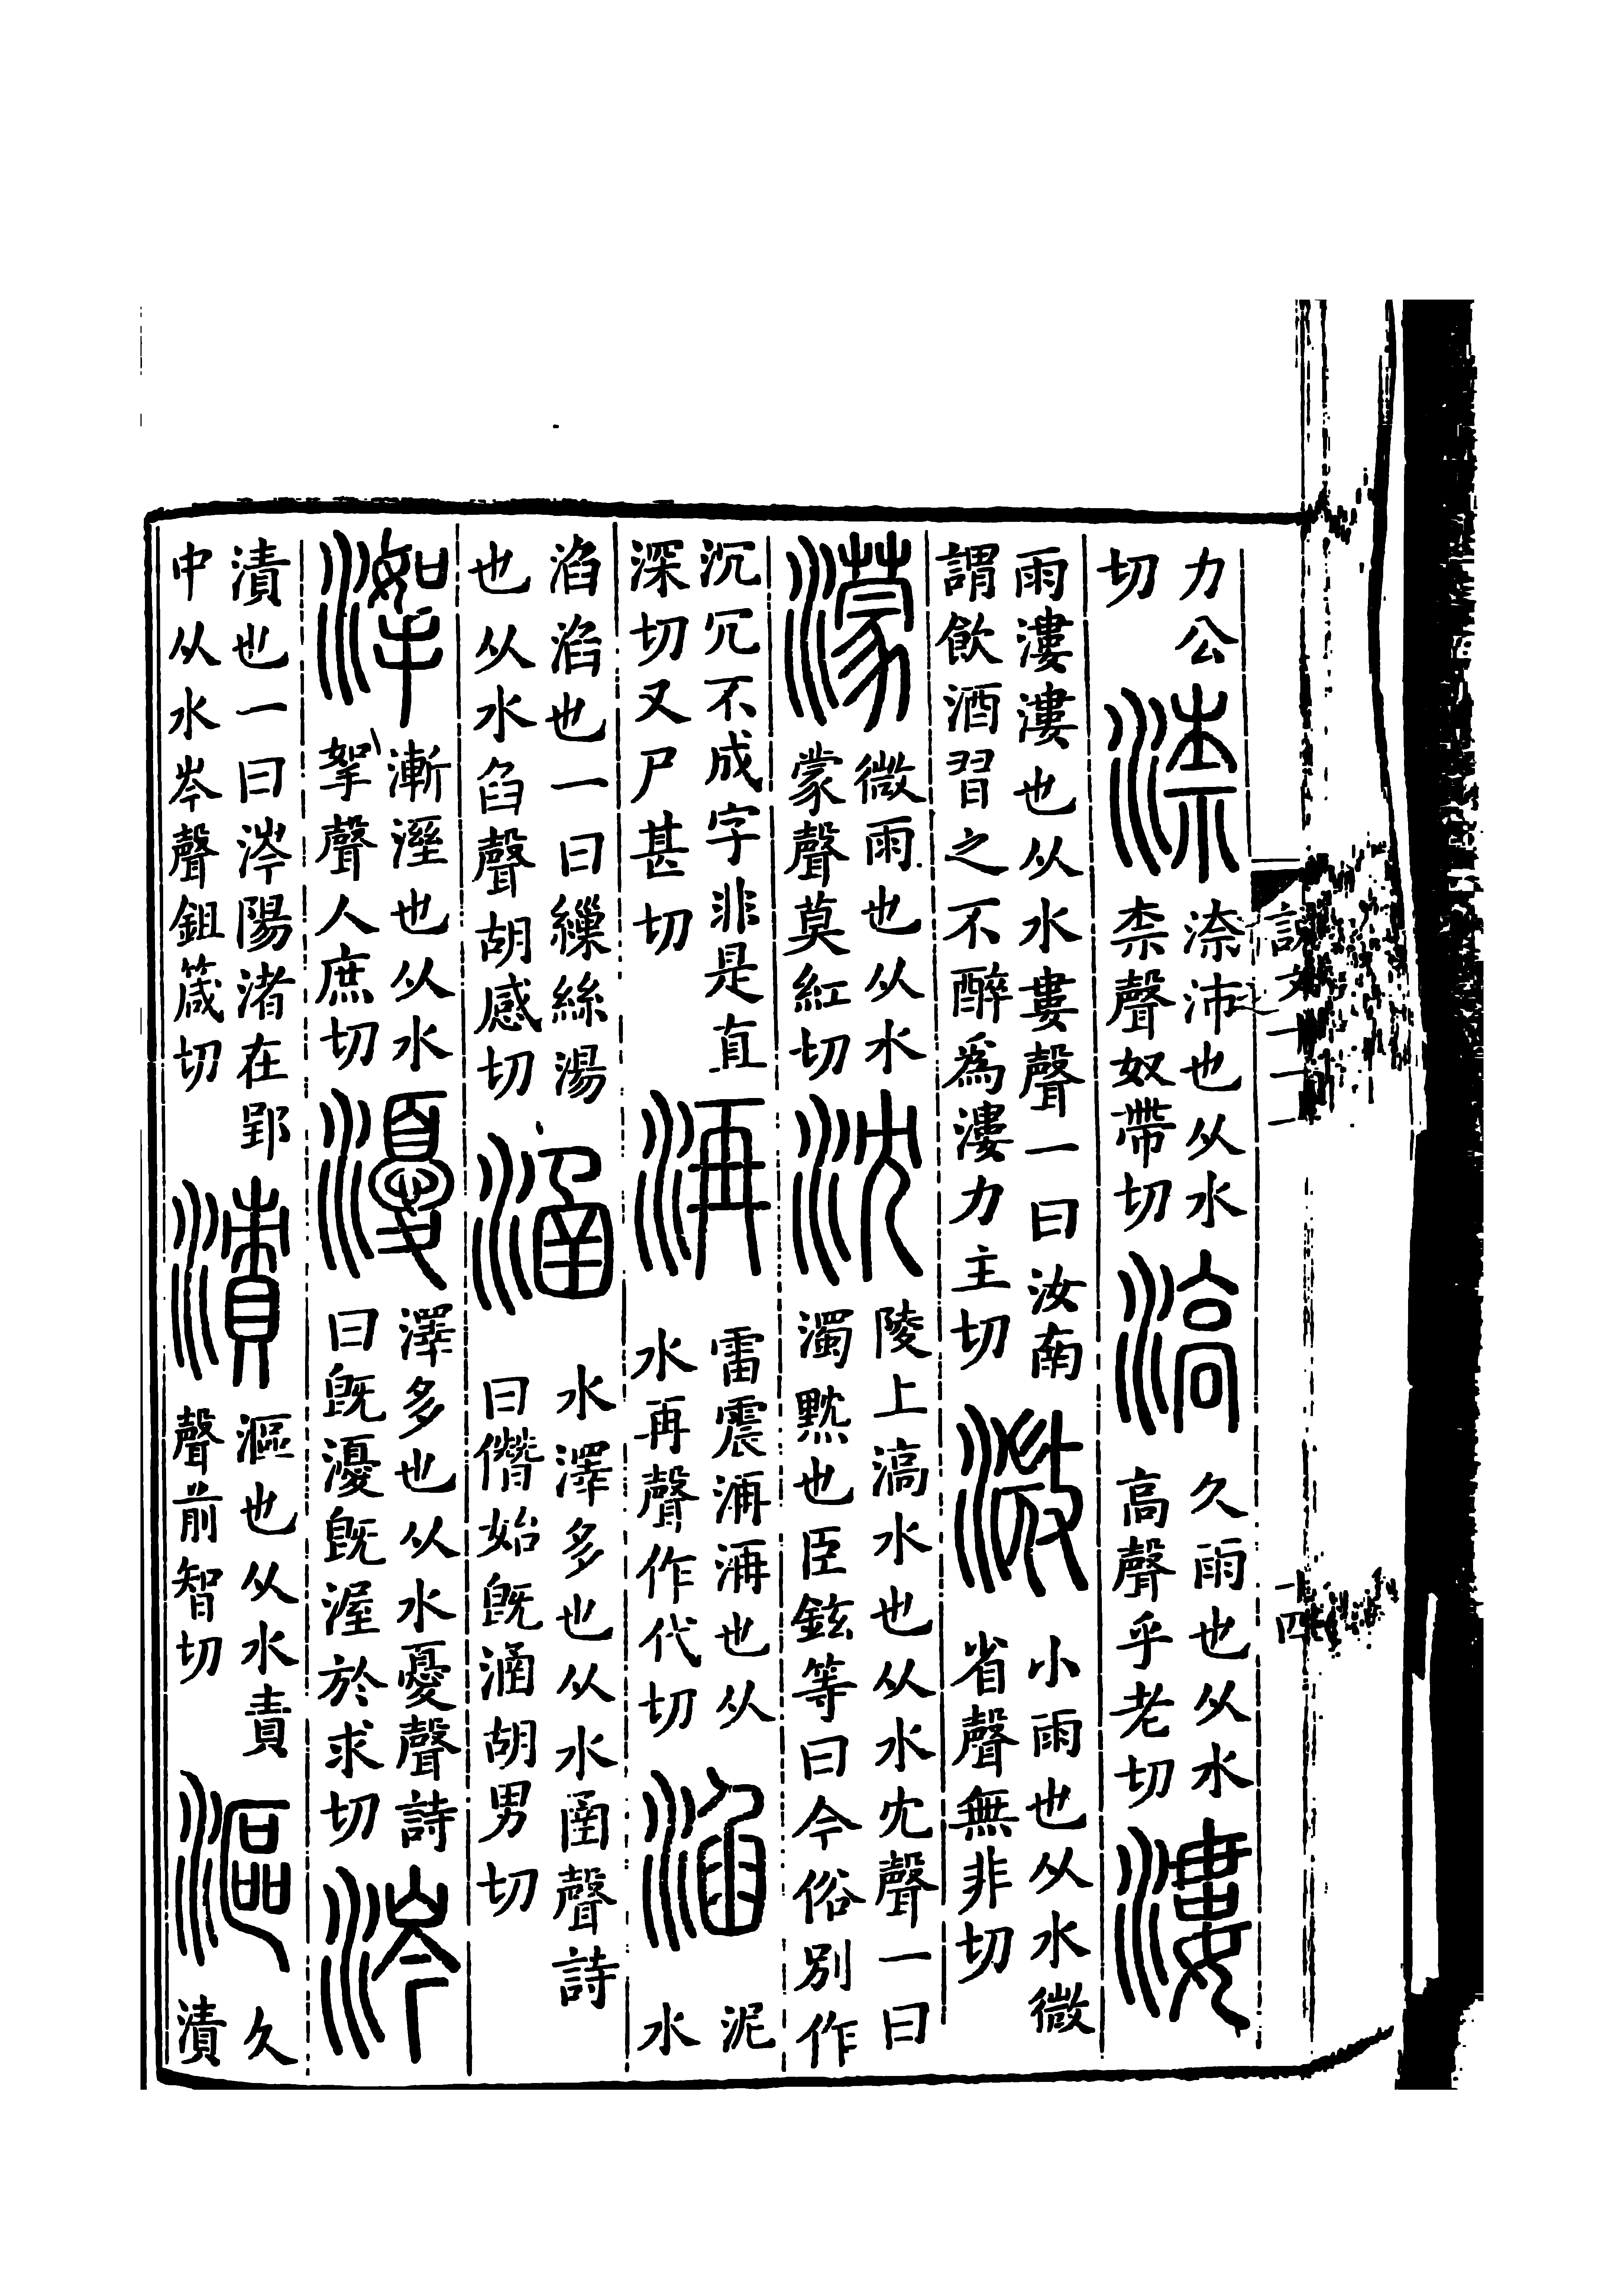 説文十一上
十四
力公切渿渿沛也从水柰聲奴帶切滈久雨也从水高聲乎老切漊
雨漊漊也从水婁聲一曰汝南謂飲酒習之不醉爲漊力主切溦小雨也从水微省聲無非切
濛微雨也从水蒙聲莫紅切沈陵上滈水也从水冘聲一曰濁黕也臣鉉等曰今俗別作
沉冗不成字非是直深切又尸甚切洅雷震洅洅也从水再聲作代切淊泥水
淊淊也一曰繅絲湯也从水臽聲胡感切㴠水澤多也从水圅聲詩曰僭始既㴠胡男切
漸溼也从水挐聲人庶切瀀澤多也从水憂聲詩曰既瀀既渥於求切涔
漬也一曰涔陽渚在郢中从水岑聲鉏箴切漬漚也从水責聲前智切漚久漬